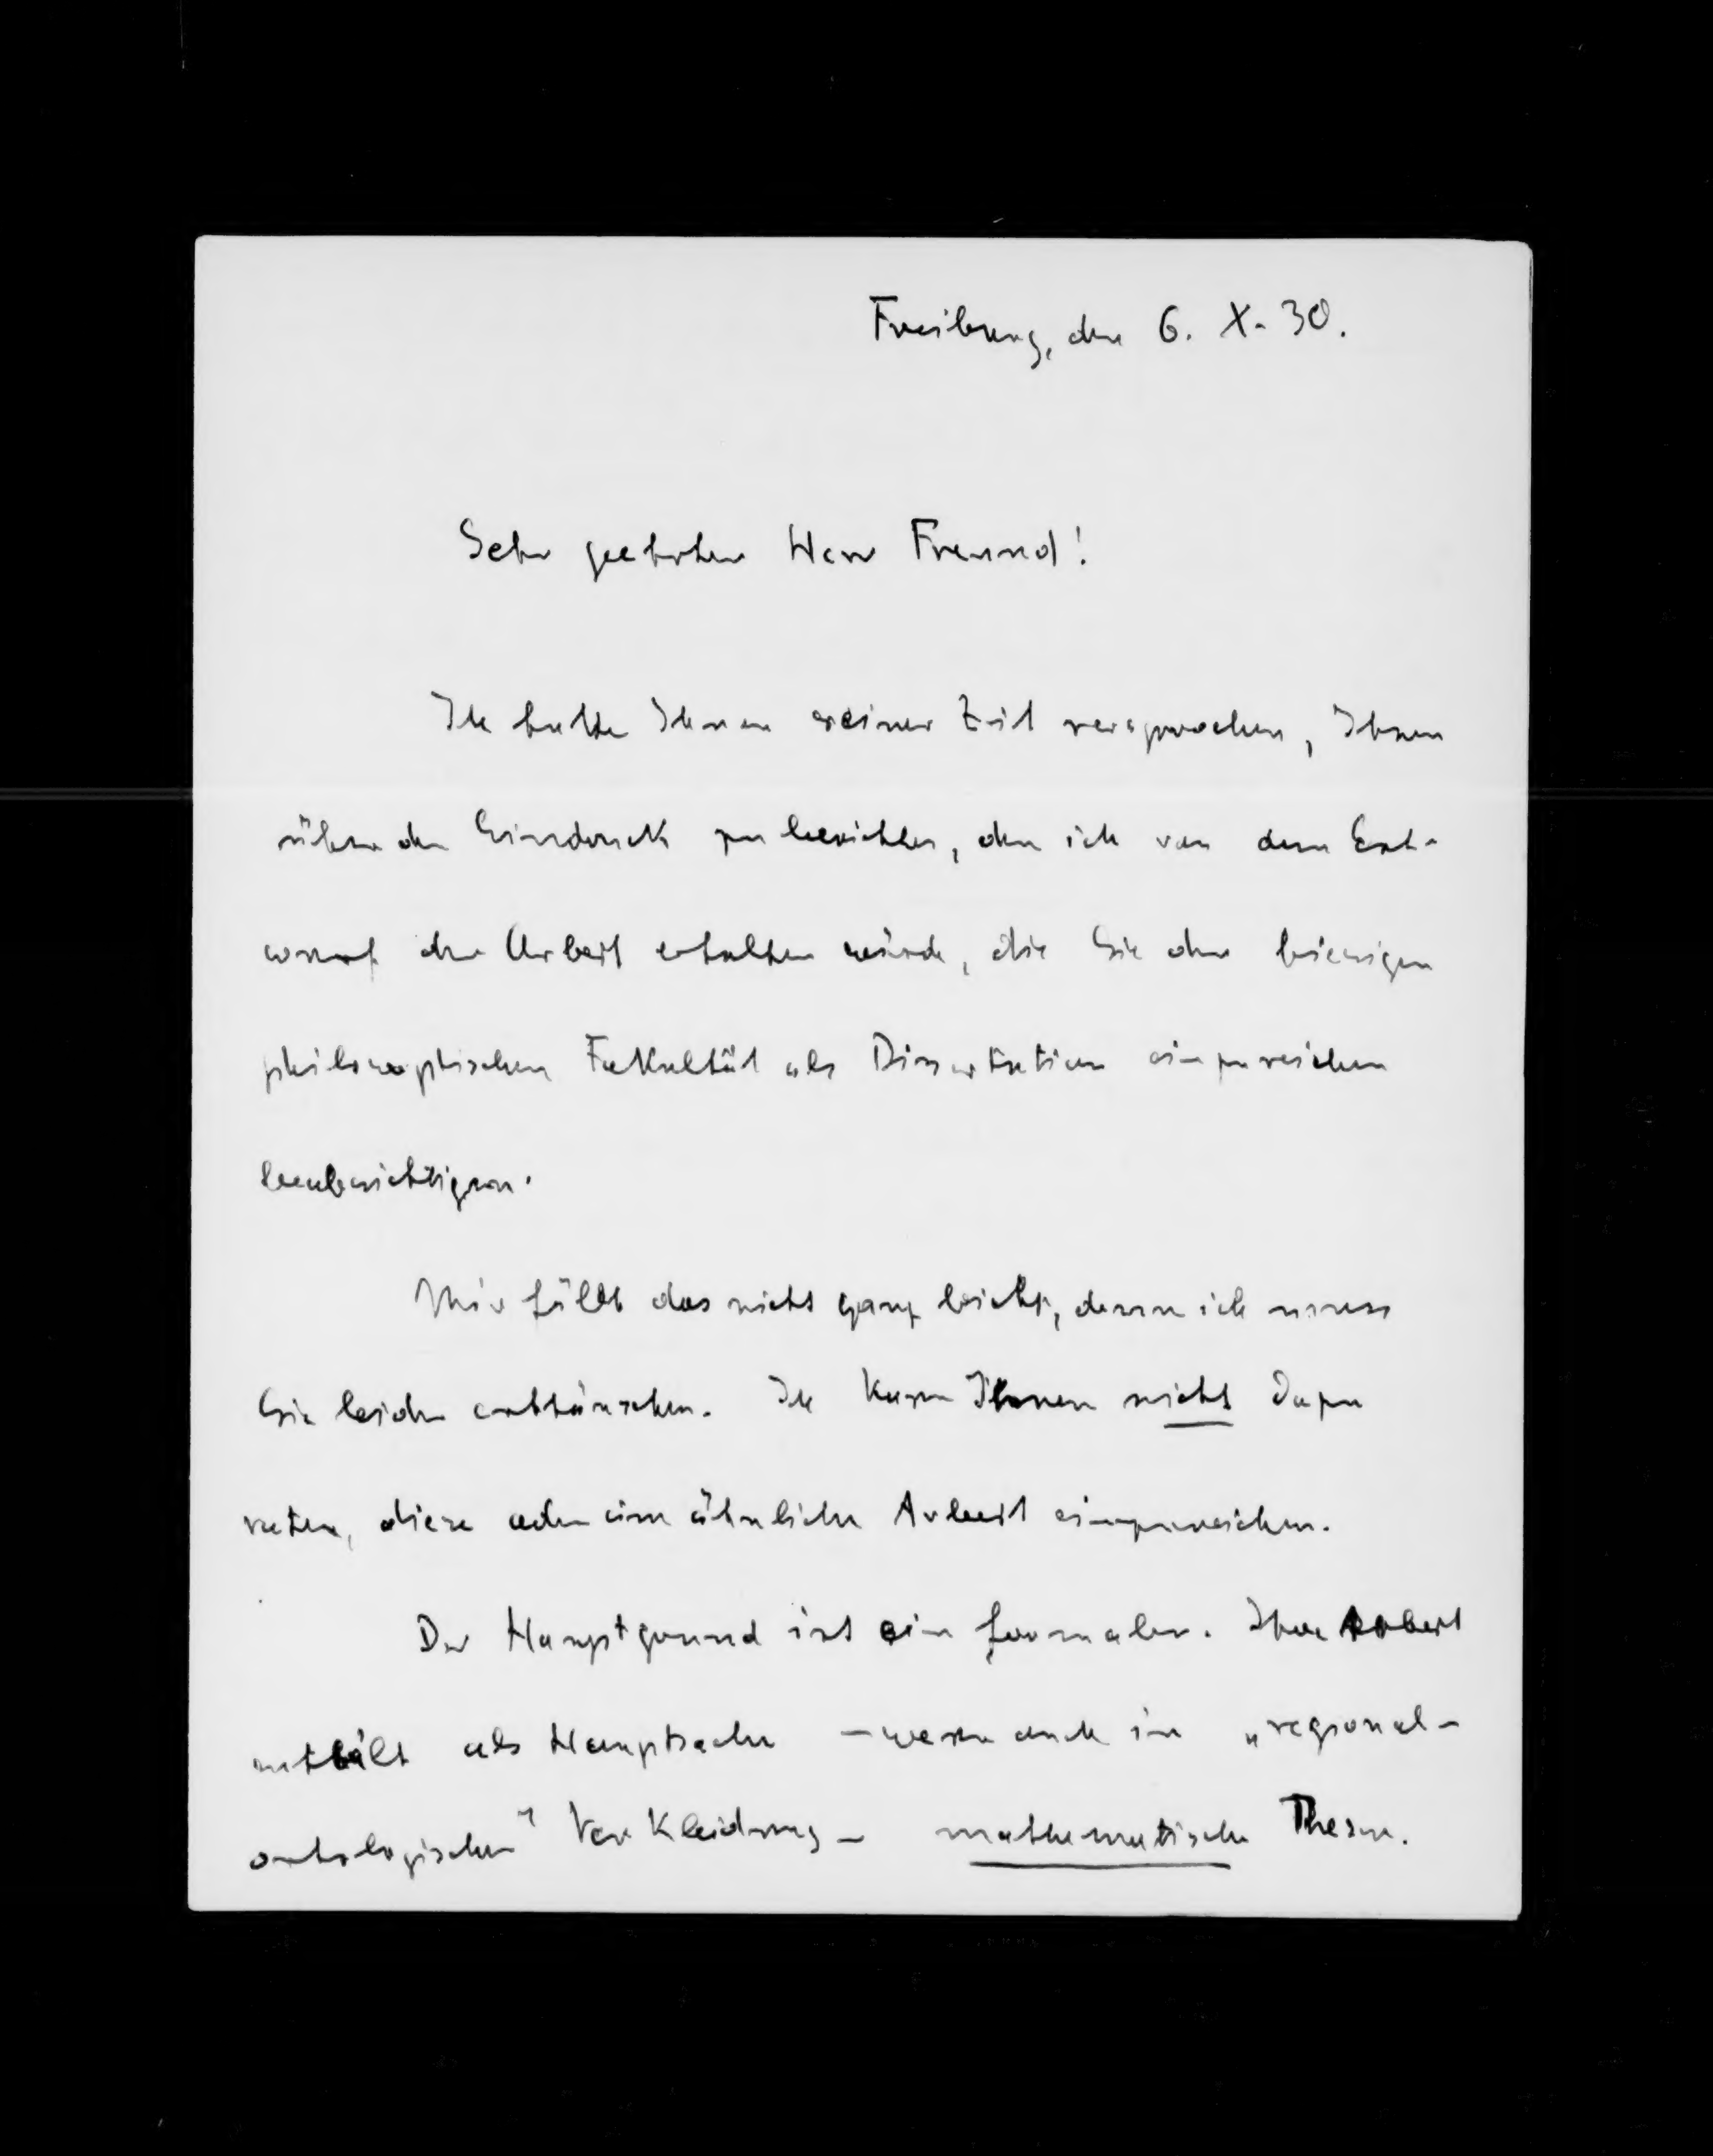 Freiburg, den 6. X. 30.
Sehr geehrter Herr Freund!
Ich hatte Ihnen seiner Zeit versprochen, Ihnen
über den Eindruck zu berichten, den ich von dem Ent-
wurf der Arbeit erhalten würde, die Sie der hiesigen
philosophischen Fakultät als Dissertation einzureichen
beabsichtigen.
Mir fällt das nicht ganz leicht, denn ich muss
Sie leider enttäuschen. Ich kann Ihnen nicht dazu
raten, diese oder eine ähnliche Arbeit einzureichen.
Der Hauptgrund ist ein formaler. Ihre Arbeit
enthält als Hauptsache – wenn auch in „regional-
ontologischer" Verkleidung – mathematische Thesen.